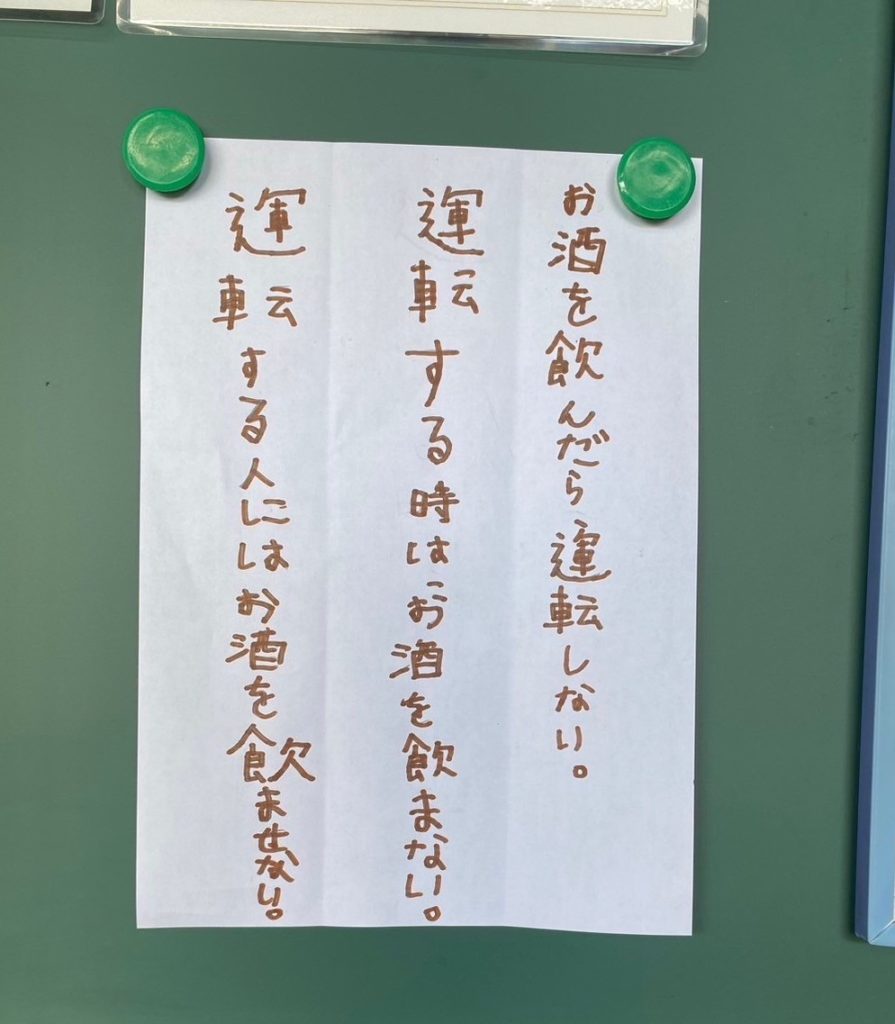 お酒を飲んだら運転しない。
運転する時はお酒を飲まない。
運転する人にはお酒を飲ませない。